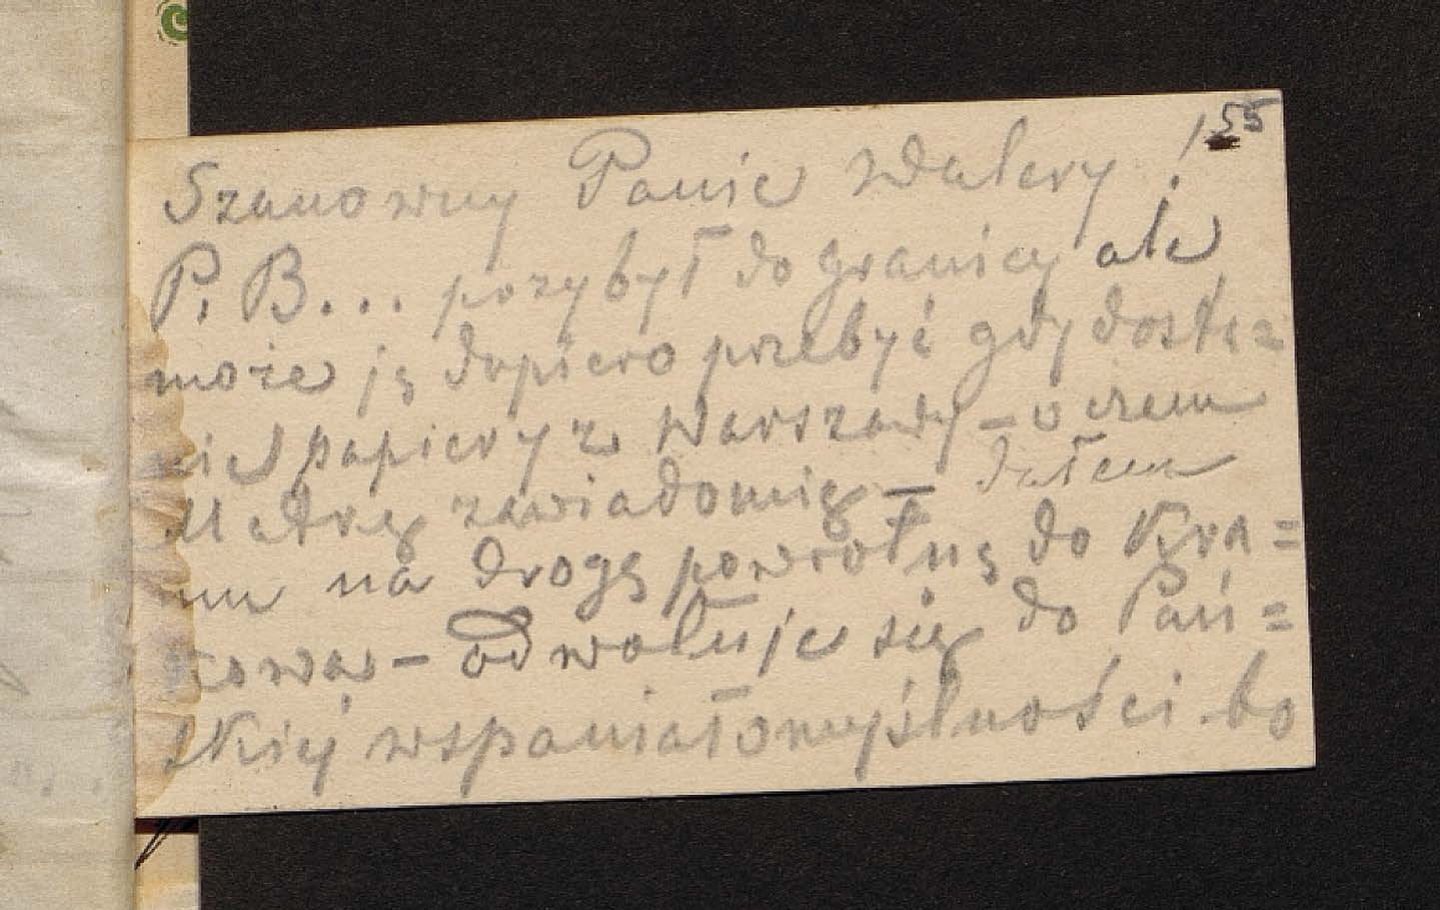 155
Szanowny Panie Walery!
P. B... przybył do granicy ale
może ją dopiero przebyć gdy dosta=
nie papiery z Warszawy – o czem
zawiadomię – dałem
mu na drogę powrotną do Kra=
kowa – odwołuję się do Pań=
skiej wspaniałomyślności bo